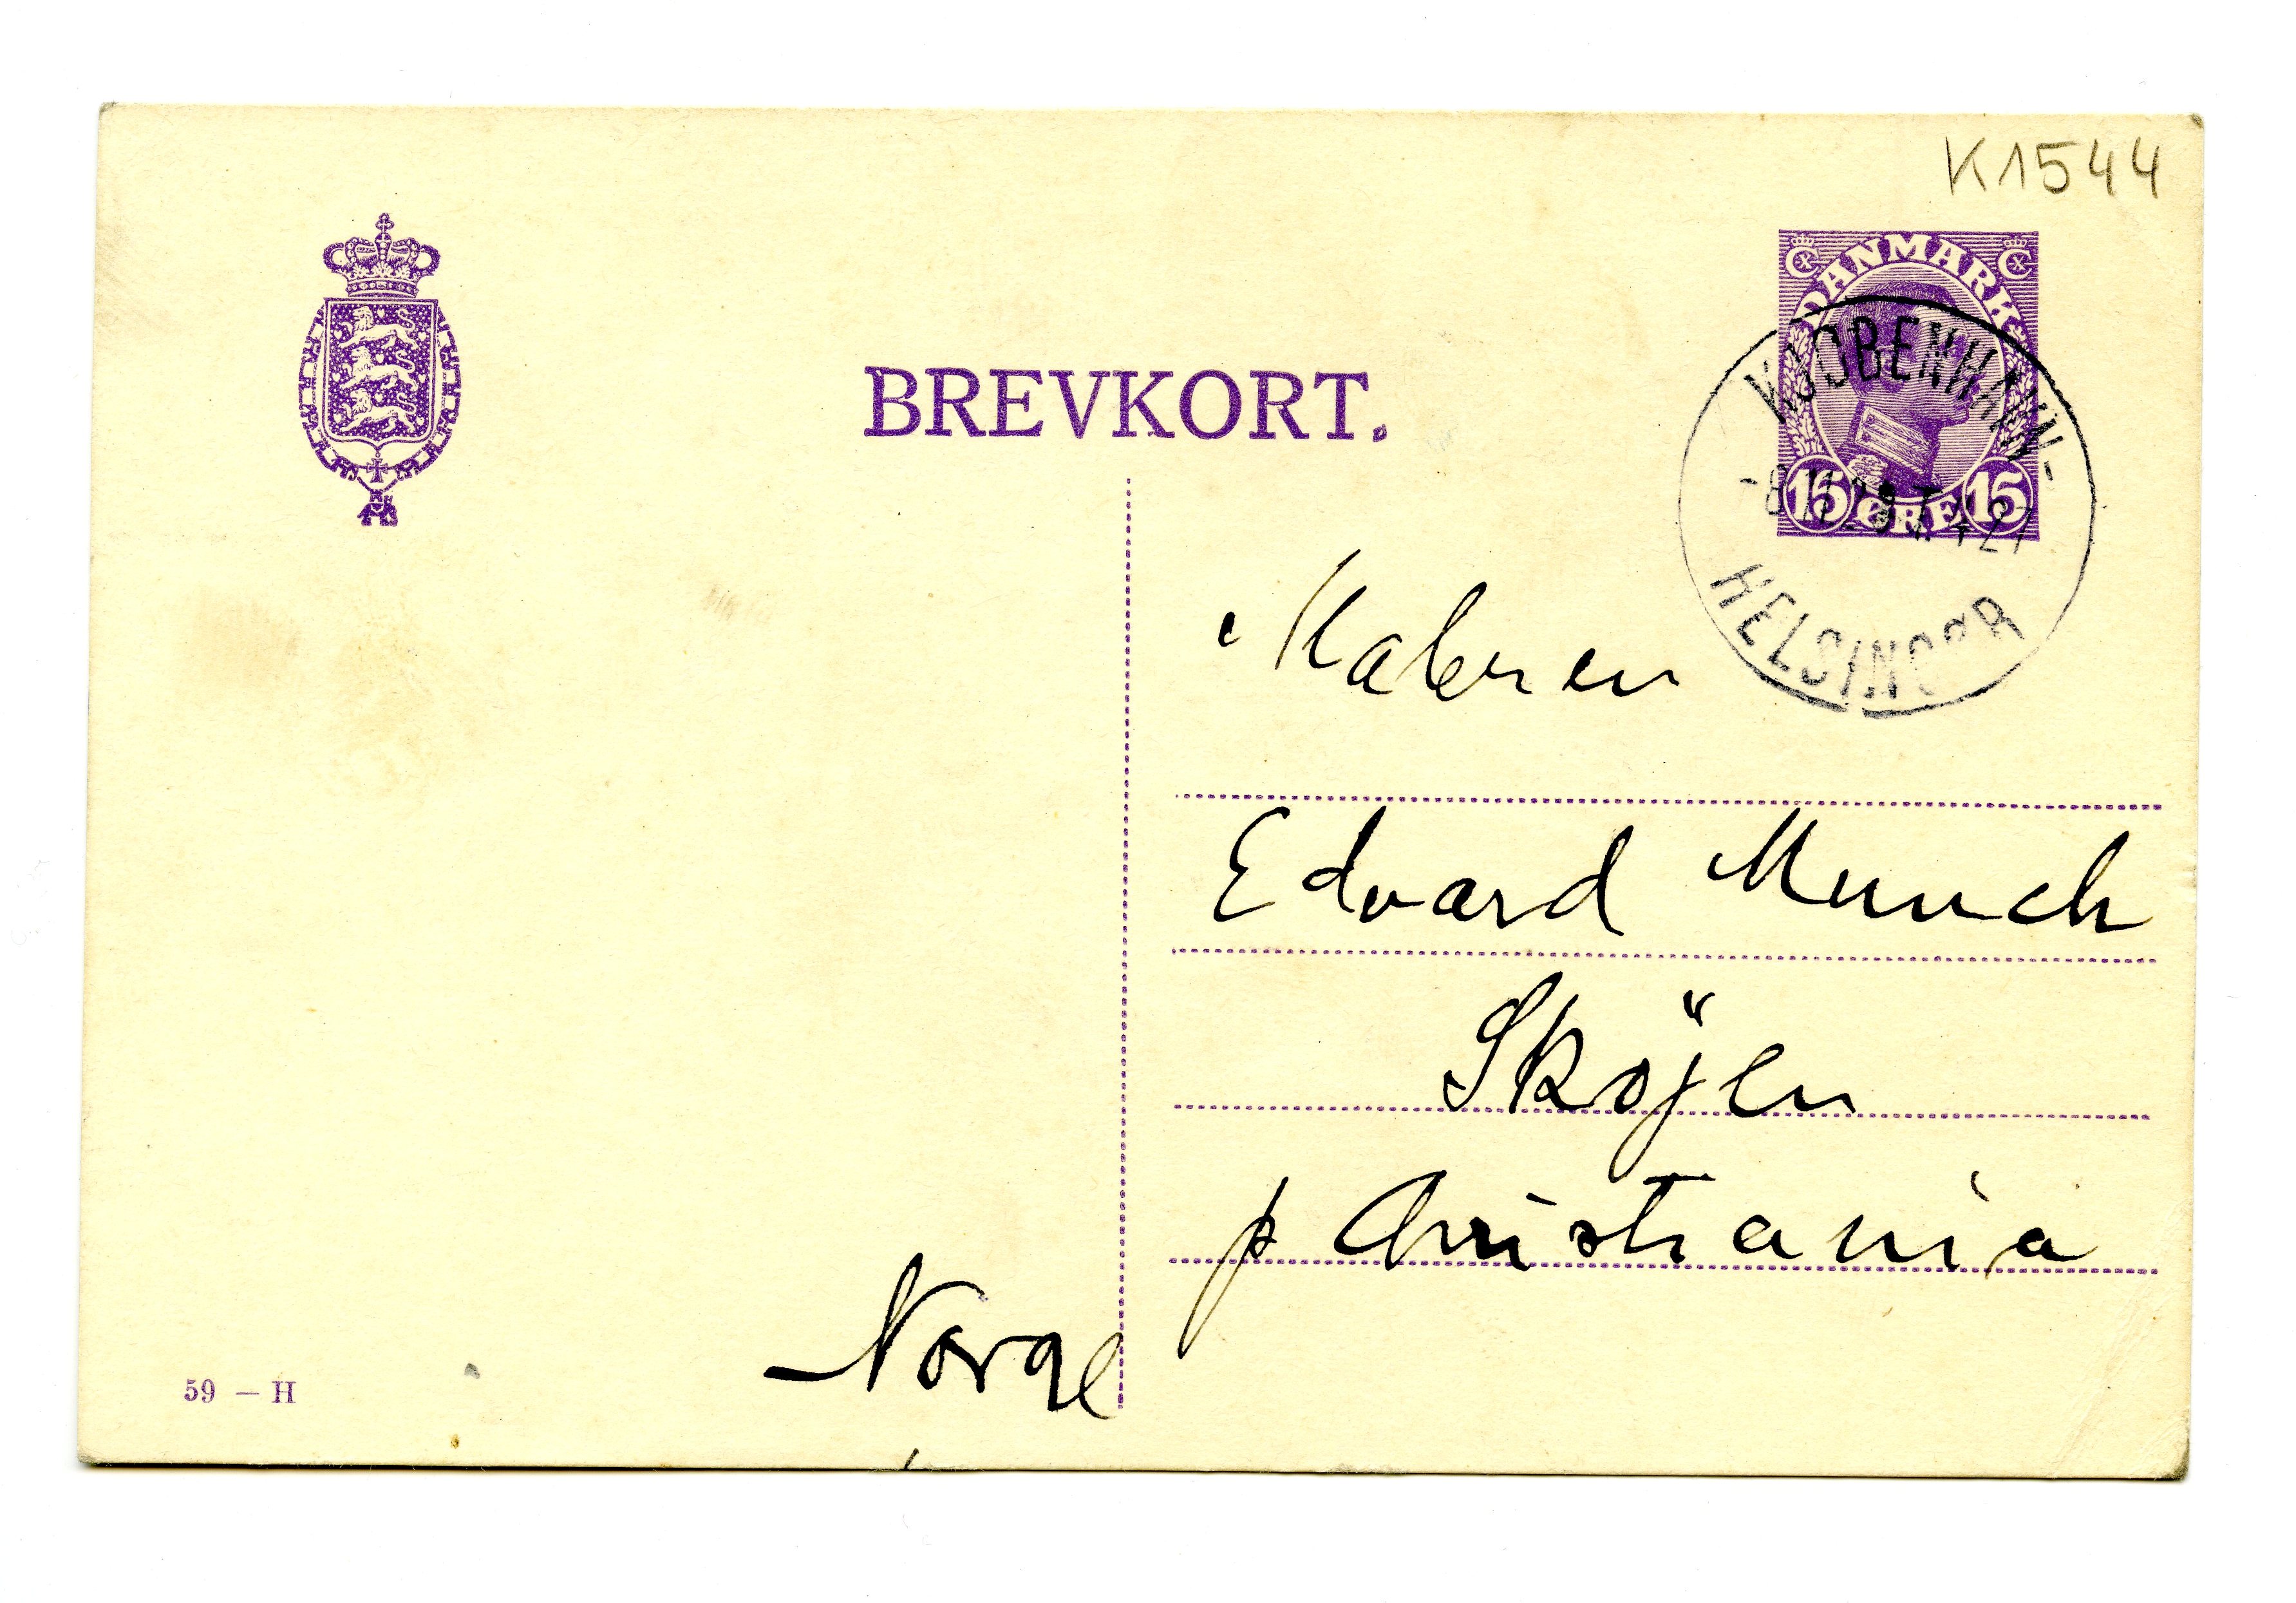 K1544
DANMARK
KJØBENHAVN-
15 ØRE 15
HELSINGØR
BREVKORT.
Maleren
Edvard Munch
Sköjen
p Christiania
Norge
59 – H